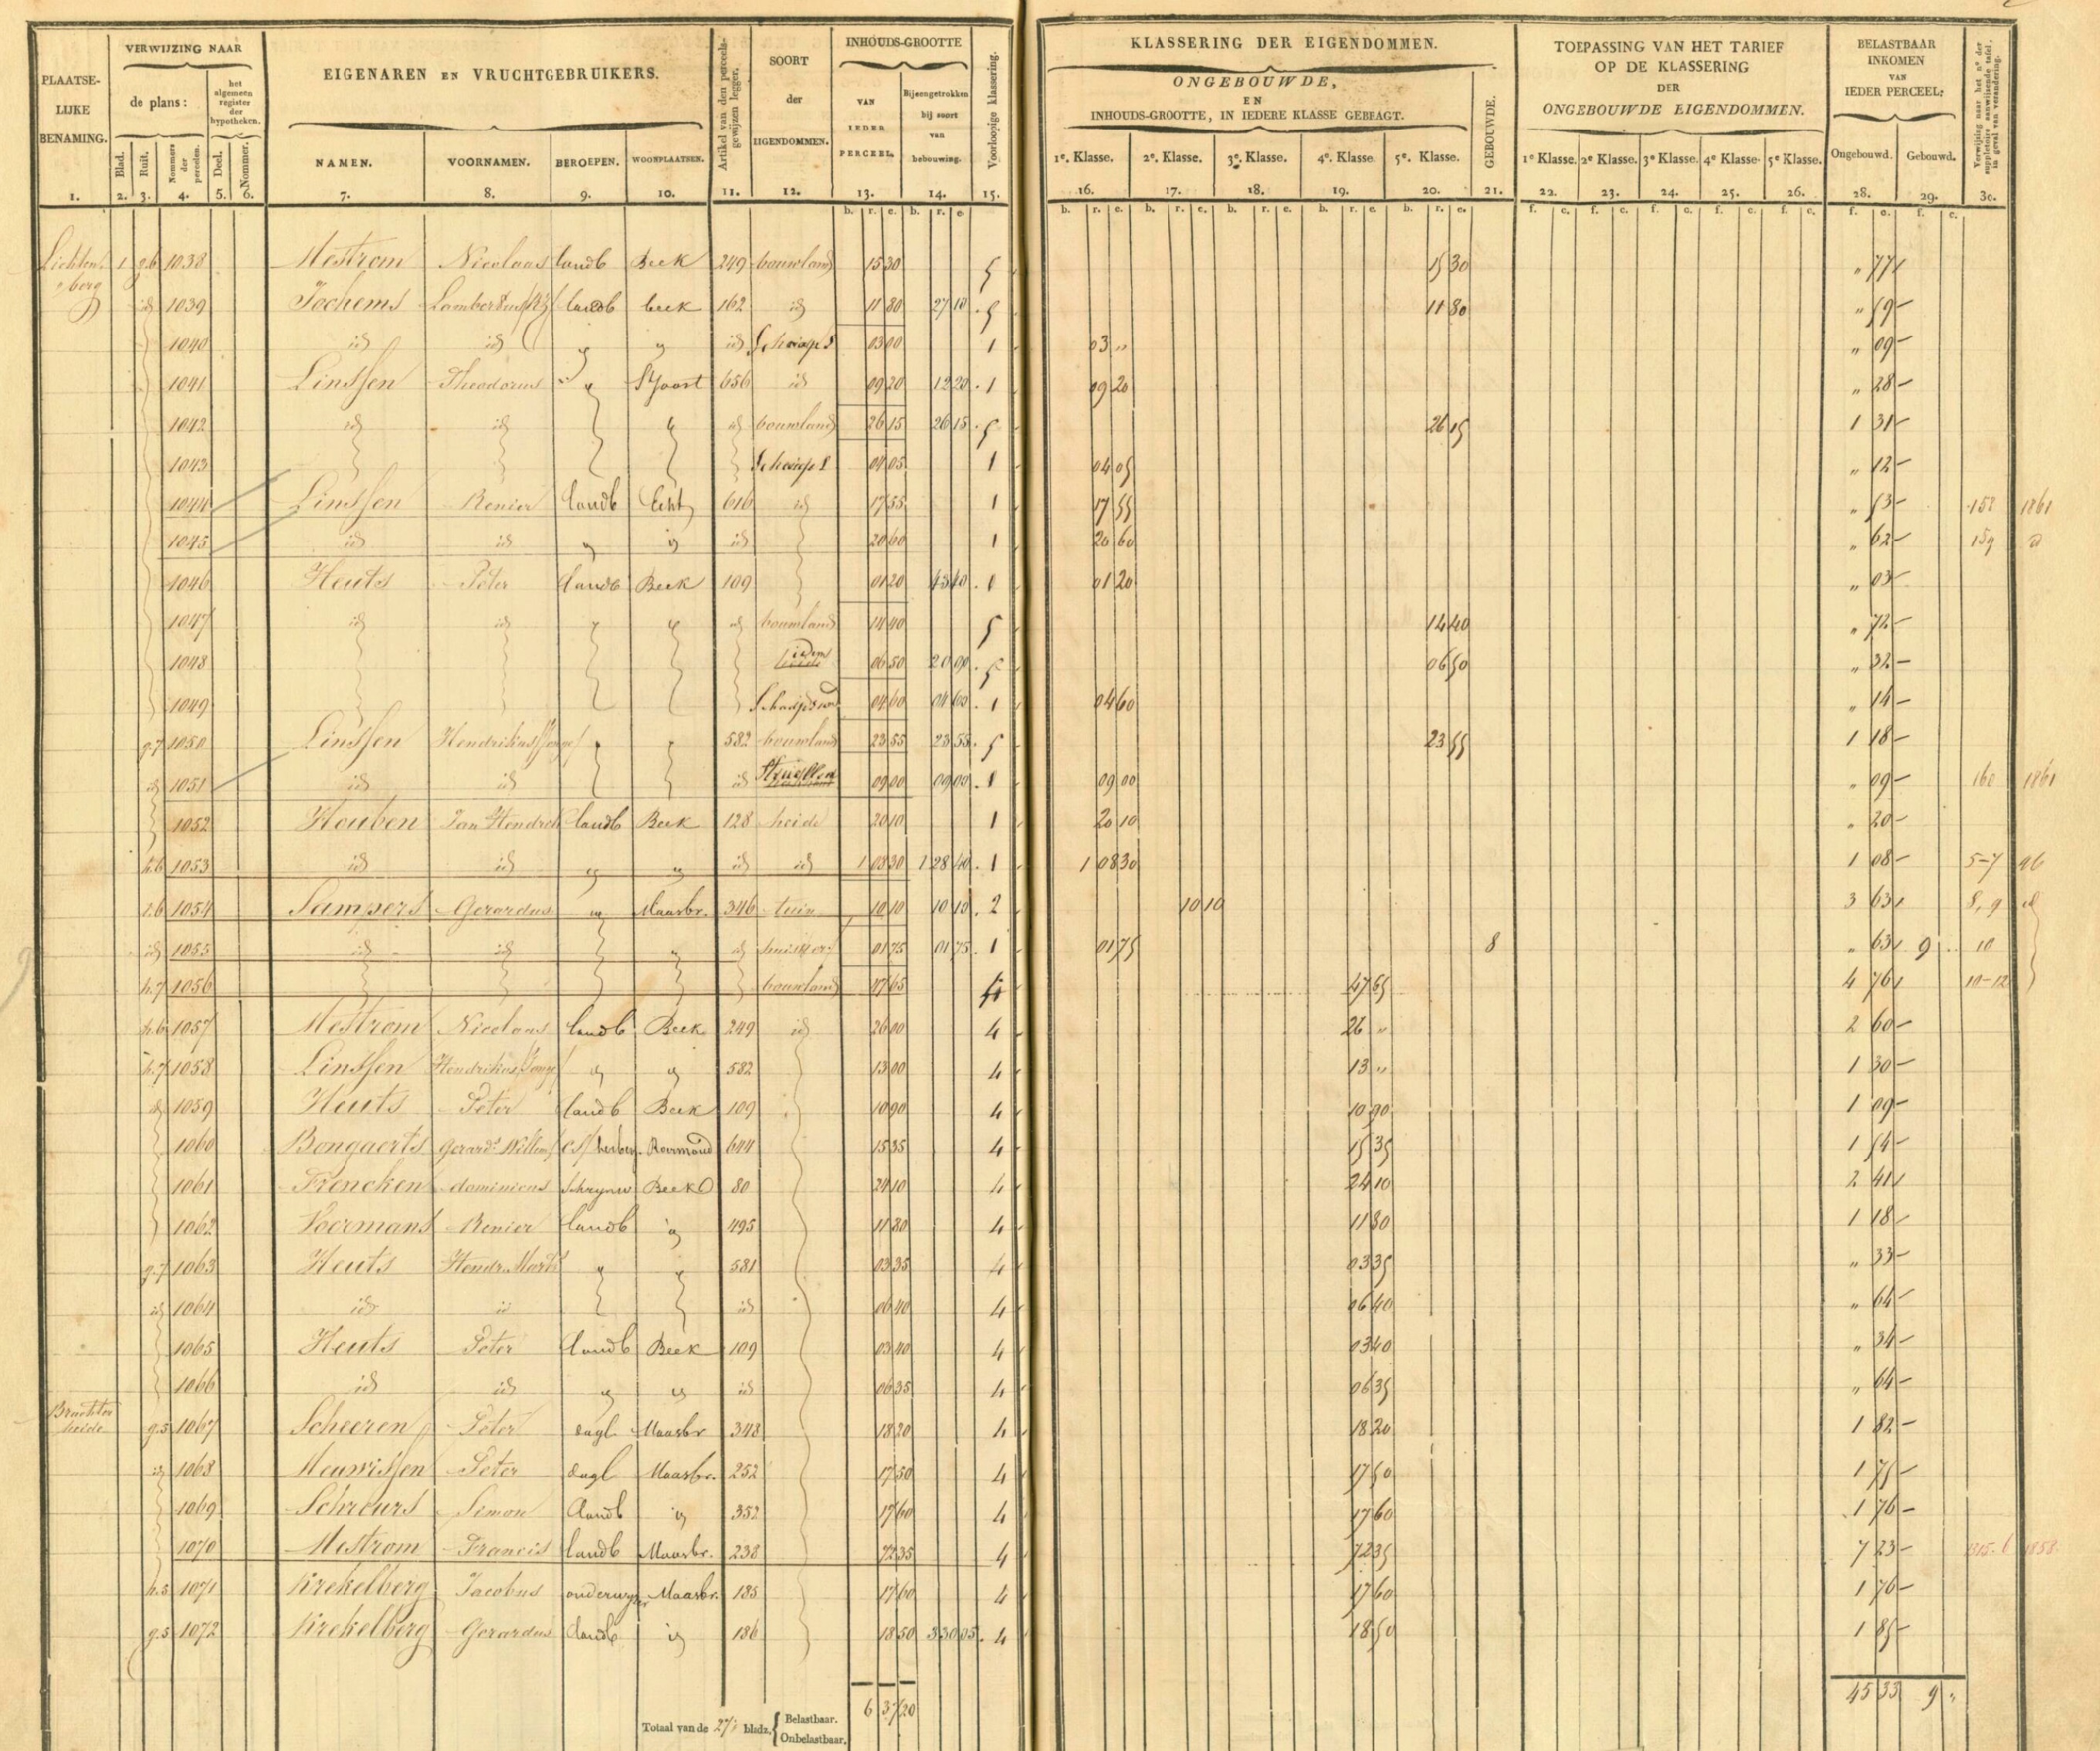 PLAATSE-LIJKE BENAMING. VERWIJZING NAAR de plans: het algemeen register der hypotheken. EIGENAREN EN VRUCHTGEBRUIKERS. Artikel van den perceels-gewijzen legger. SOORT der EIGENDOMMEN. INHOUDS-GROOTTE VAN IEDER PERCEEL. Bijeengetrokken bij soort van bebouwing. Voorloopige klassering.
KLASSERING DER EIGENDOMMEN. ONGEBOUWDE, EN INHOUDS-GROOTTE, IN IEDERE KLASSE GEBRAGT. GEBOUWDE. TOEPASSING VAN HET TARIEF OP DE KLASSERING DER ONGEBOUWDE EIGENDOMMEN. BELASTBAAR INKOMEN VAN IEDER PERCEEL: Verwijzing naar het n°. der suppletoire aanwijzende tafel, in geval van verandering.
Blad. Ruit. Nommers der perceelen. Deel. Nommer. NAMEN. VOORNAMEN. BEROEPEN. WOONPLAATSEN.
1e. Klasse. 2e. Klasse. 3e. Klasse. 4e. Klasse 5e. Klasse. 1e Klasse. 2e Klasse. 3e Klasse. 4e Klasse. 5e Klasse. Ongebouwd. Gebouwd.
1. 2. 3. 4. 5. 6. 7. 8. 9. 10. 11. 12. 13. 14. 15. 16. 17. 18. 19. 20. 21. 22. 23. 24. 25. 26. 28. 29. 30.
b. r. e. b. r. e. b. r. e. b. r. e. b. r. e. b. r. e. b. r. e. f. c. f. c. f. c. f. c. f. c. f. c. f. c.
Lichten berg 1 g.6 1038 Mestrom Nicolaas landb Beek 249 bouwland 15 30 5 15 30 " 77
id 1039 Jochems Lambertus landb beek 162 id 11 80 27 10 5 11 80 " 59
1040 id id id Schaaps 03 00 1 03 " " 09
1041 Linssen Theodorus " St Joost 656 id 09 20 12 20 1 09 20 " 28
1042 id id id bouwland 26 15 26 15 5 26 15 1 31
1043 Schaaps 04 05 1 04 05 " 12
1044 Linssen Renier landb Echt 616 id 17 55 1 17 55 " 53 158 1861
1045 id id id id 20 60 1 20 60 " 62 159 id
1046 Heuts Peter landb Beek 109 01 20 43 40 1 01 20 " 03
1047 id id id bouwland 14 40 5 14 40 " 72
1048 idem 06 50 20 90 5 06 50 " 32
1049 04 60 04 60 1 04 60 " 14
g.7 1050 Linssen Hendrikus 582 bouwland 23 55 23 55 5 23 55 1 18
id 1051 id id id 09 00 09 00 1 09 00 " 09 160 1861
1052 Houben Jan Hendrik landb Beek 128 heide 20 10 1 20 10 " 20
h.6 1053 id id id id 1 08 30 1 28 40 1 1 08 30 1 08 5-7 46
1054 Sampers Gerardus Maasbr. 346 tuin 10 10 10 10 2 10 10 3 63 8, 9 id
id 1055 id id id 01 75 01 75 1 01 75 8 " 63 9 10
h.7 1056 bouwland 47 65 4 47 65 4 76 10-12
h.6 1057 Mestrom Nicolaas landb Beek 249 id 26 00 4 26 " 2 60
h.7 1058 Linssen Hendrikus id 582 13 00 4 13 " 1 30
id 1059 Heuts Peter landb Beek 109 10 90 4 10 90 1 09
1060 Bongaerts Gerard. Willem Roermond 644 15 35 4 15 35 1 54
1061 Frencken dominicus Schrijnw Beek 80 24 10 4 24 10 2 41
1062 Voermans Renier landb id 495 11 80 4 11 80 1 18
g.7 1063 Heuts Hendr. 581 03 35 4 03 35 " 33
id 1064 id id id 06 40 4 06 40 " 64
1065 Heuts Peter landb Beek 109 03 40 4 03 40 " 34
1066 id id id 06 35 4 06 35 " 64
Brachter heide g.5 1067 Scheeren Peter dagl Maasbr 348 18 20 4 18 20 1 82
id 1068 Meuwissen Peter dagl Maasbr. 252 17 50 4 17 50 1 75
1069 Schreurs Simon landb id 352 17 60 4 17 60 1 76
1070 Mestrom Francis landb Maasbr. 238 72 35 4 72 35 7 23 1858
h.5 1071 Krekelberg Jacobus onderwyzer Maasbr. 185 17 60 4 17 60 1 76
g.5 1072 Krekelberg Gerardus landb id 186 18 50 3 30 05 4 18 50 1 85
45 33 9 "
Totaal van de 27e bladz. Belastbaar. 6 37 20
Onbelastbaar.